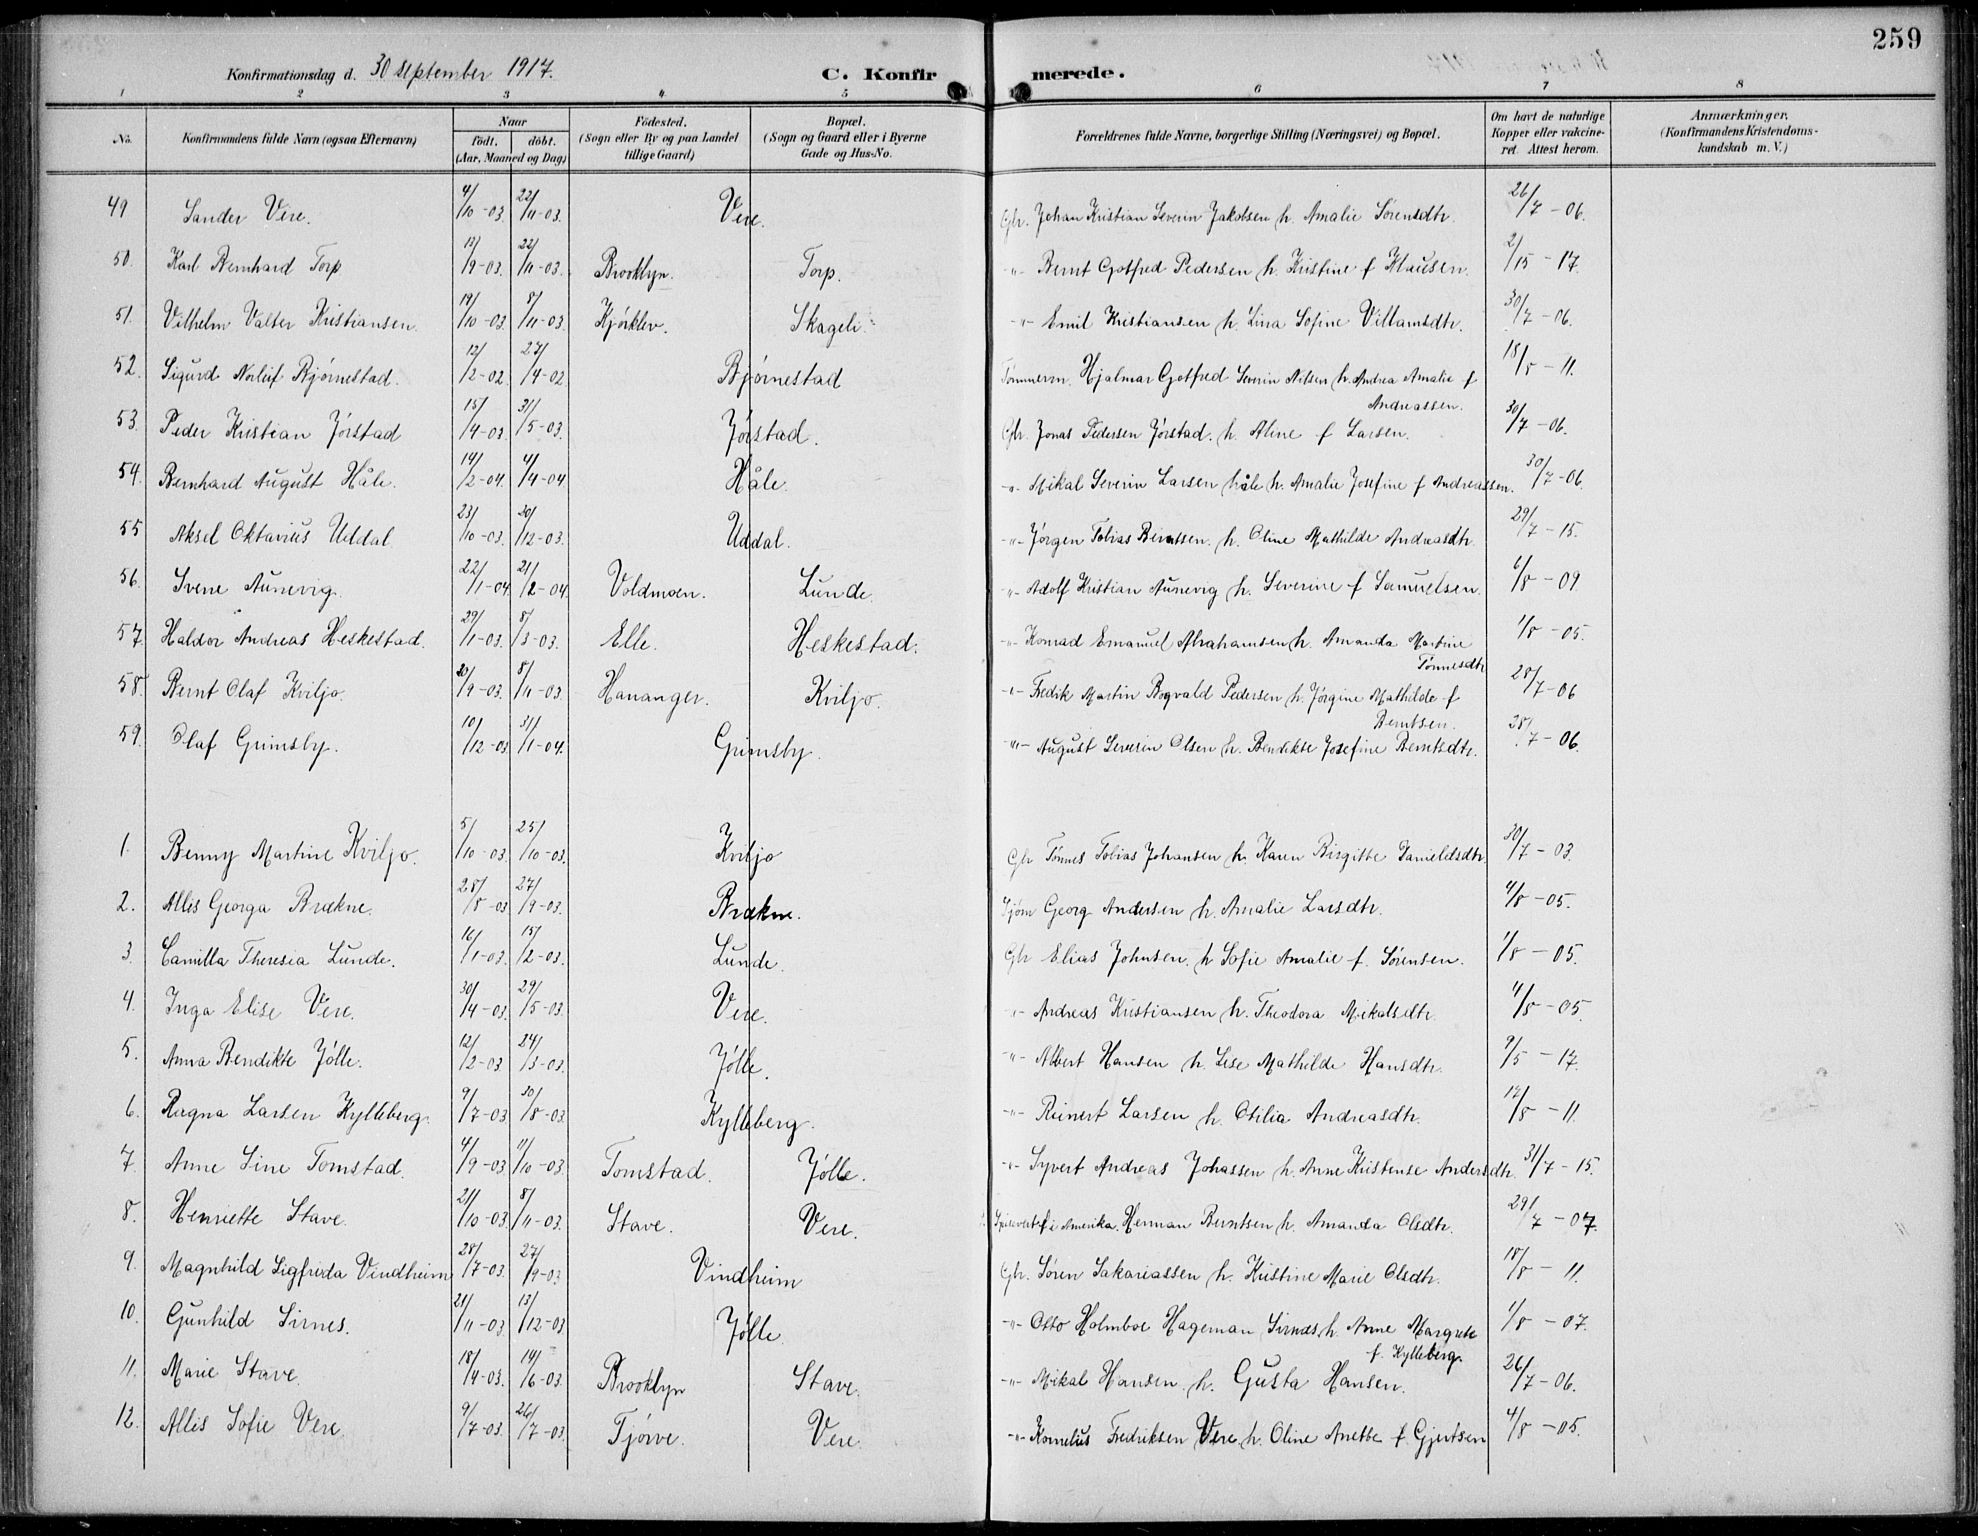 259
Konfirmationsdag d. 30 september 1917. C. Konfirmerede.
1 2 3 4 5 6 7 8
No. Konfirmandens fulde Navn (ogsaa Efternavn) Naar født. døbt. (Aar, Maaned og Dag) Fødested. (Sogn eller By og paa Landet tillige Gaard) Bopæl. (Sogn og Gaard eller i Byerne Gade og Hus-No. Forældrenes fulde Navne, borgerlige Stilling (Næringsvei) og Bopæl. Om havt de naturlige Kopper eller vakcineret. Attest herom. Anmærkninger, (Konfirmandens Kristendomskundskab m. V.)
49 Sander Vere. 4/10-03 22/11-03. Vere. Gbr. Johan Kristian Severin Jakobsen h. Amalie Sørensdtr. 26/7-06.
50. Karl Bernhard Torp 13/9-03. 22/11-03. Brooklyn. Torp. -"- Bernt Gotfred Pedersen h. Kristine f Klausen. 2/15-17.
51. Vilhelm Valter Kristiansen. 19/10-03. 8/11-03. Kjørklev. Skageli. -"- Emil Kristiansen h. Lina Sofine Villamsdtr. 30/7-06.
52. Sigurd Norleif Bjørnestad. 12/2-02. 27/4-02 Bjørnestad Tømmerm. Hjalmar Gotfred Severin Nilsen h. Andrea Amalie f Andreassen. 18/5-11.
53. Peder Kristian Jørstad 15/4-03. 31/5-03. Jørstad. Gbr. Jonas Pedersen Jørstad. h. Aline f Larsen. 30/7-06.
54. Bernhard August Håle. 14/2-04. 4/4-04 Håle. -"- Mikal Severin Larsen håle h. Amalie Josefine f Andreassen. 30/7-06.
55 Aksel Oktavius Uddal 23/10-03. 20/12-03. Uddal. -"- Jørgen Tobias Berntsen. h. Oline Mathilde Andreasdtr. 29/7-15.
56. Svene Aunevig. 22/1-04. 21/2-04. Voldmoen. Lunde. -"- Adolf Kristian Aunevig h. Severine f Samuelsen. 6/8-09
57. Haldor Andreas Heskestad. 29/1-03. 8/3-03. Elle. Heskestad. -"- Konrad Emanuel Abrahamsen h. Amanda Martine Tønnesdtr 1/8-05.
58. Bernt Olaf Kviljo. 20/9-03. 8/11-03. Hananger. Kviljo. -"- Fredik Martin Bogvald Pedersen h. Jørgine Mathilde f Berntsen. 28/7-06
59. Olaf Grimsby. 10/12-03. 31/1-04. Grimsby. -"- August Severin Olsen h. Bendikte Josefine Berntsdtr. 28/7-06.
1. Benny Martine Kviljo. 5/10-03. 25/10-03. Kviljo Gbr Tønnes Tobias Johansen h. Karen Birgitte Danieldsdtr. 30/7-03.
2. Allis Georga Brækne. 28/8-03 27/9-03. Brækne. Georg Andersen h. Amalie Larsdtr. 4/8-05.
3. Camilla Theresia Lunde. 16/1-03. 15/2-03. Lunde. Gbr Elias Johnsen. h Sofie Amalie f. Sørensen. 1/8-05.
4. Inga Elise Vere. 30/4-03. 29/5-03. Vere. -"- Andreas Kristiansen h. Theodora Mikalsdtr. 4/8-05.
5. Anna Bendikte Jølle. 12/2-03. 24/3-03. Jølle. -"- Albert Hansen h. Lise Mathilde Hansdtr. 9/5-17.
6. Ragna Larsen Kylleberg. 9/7-03 30/8-03. Kylleberg. -"- Reinert Larsen h. Otilia Andreasdtr. 12/8-11.
7. Anne Sine Tomstad. 4/9-03 11/10-03. Tomstad. Jølle. -"- Syvert Andreas Johassen h. Anne Kristense Andersdtr. 31/7-15.
8. Henriette Stave. 21/10-03. 8/11-03. Stave. Vere. f i Amerika. Herman Berntsen h. Amanda Olsdtr. 29/7-07.
9. Magnhild Sigfrida Vindheim 28/7-03. 27/9-03. Vindheim Gbr. Søren Sakariassen h. Kristine Marie Olsdtr. 18/8-11.
10. Gunhild Sirnes. 21/11-03. 13/12-03 Jølle. -"- Otto Holmboe Hageman Sirnes h. Anne Margrete f. Kylleberg. 1/8-07.
11. Marie Stave. 18/4-03. 14/6-03. Brooklyn Stave. -"- Mikal Hansen h. Gusta Hansen. 26/7-06.
12. Allis Sofie Vere. 9/7-03. 26/7-03. Tjørve. Vere. -"- Kornelus Fredriksen Vere h. Oline Anette f. Gjertsen 4/8-05.